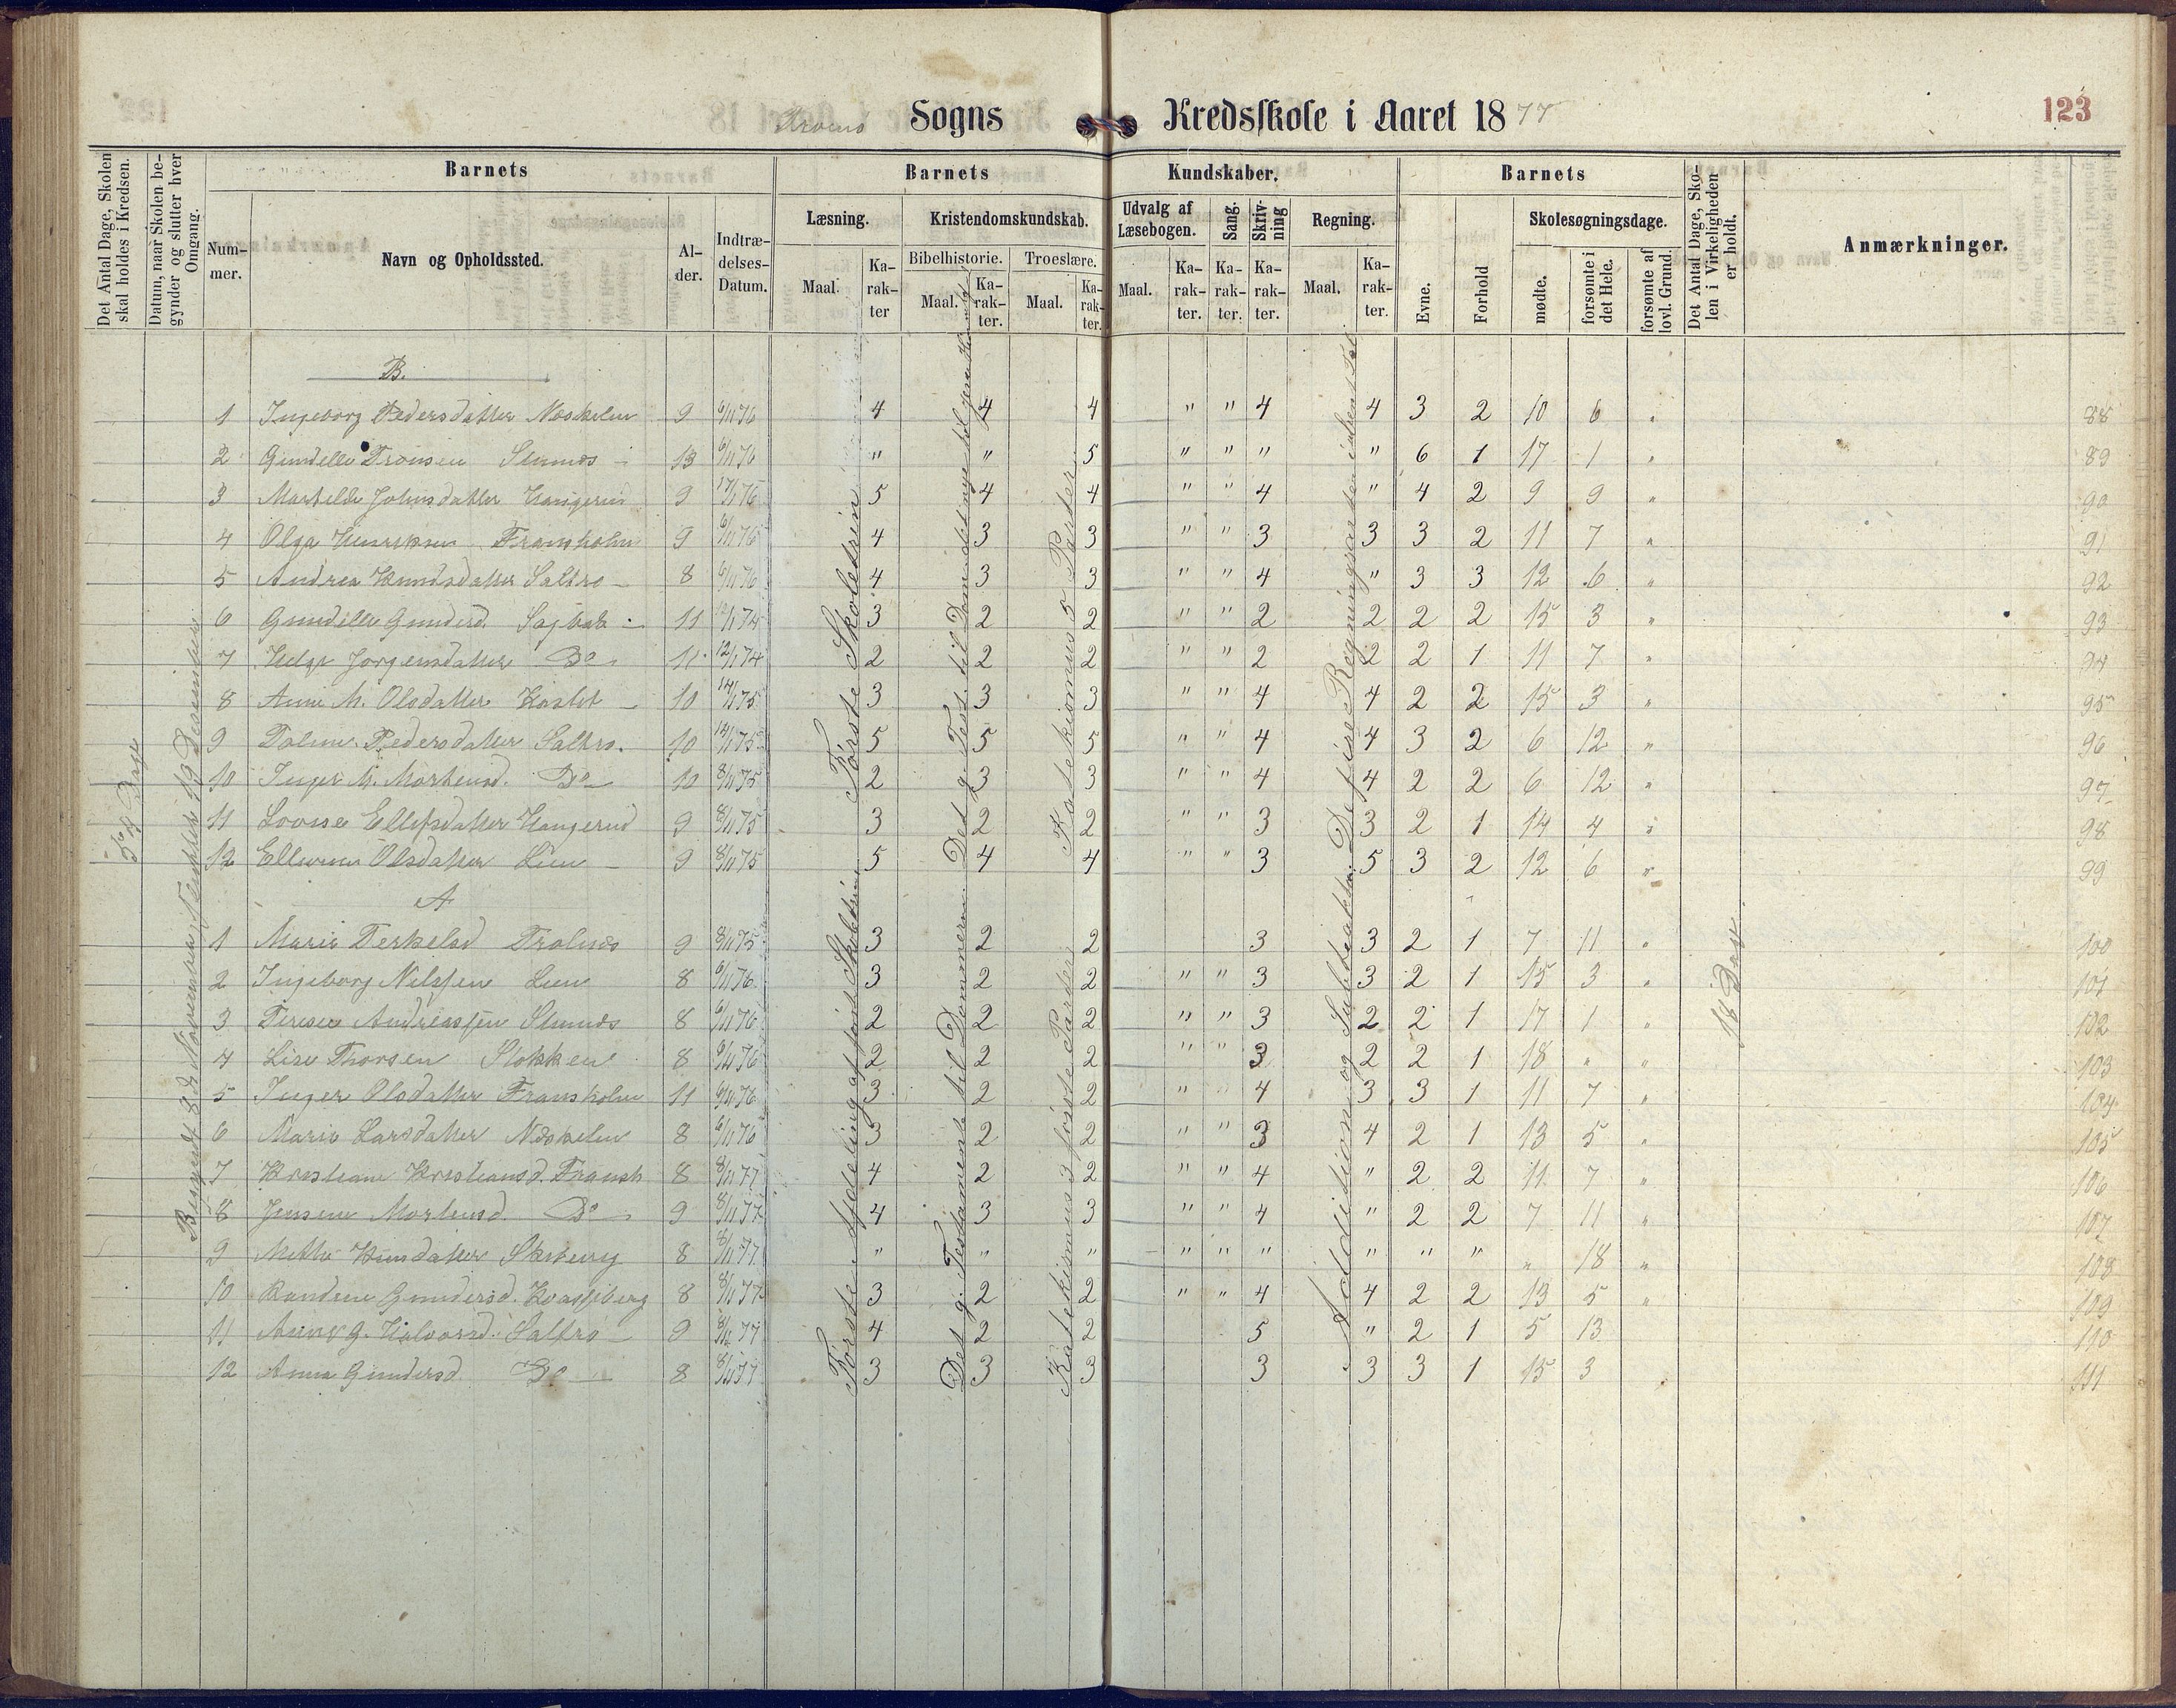 Sogns Kredsskole i Aaret 1877
123
Det Antal Dage, Skolen skal holdes i Kredsen.
Datum, naar Skolen begynder og slutter hver Omgang.
Barnets
Nummer.
Navn og Opholdssted.
Alder.
Indtrædelses-Datum.
Barnets Kundskaber.
Læsning.
Maal.
Karakter
Kristendomskundskab.
Bibelhistorie.
Maal.
Karakter.
Troeslære.
Maal.
Karakter.
Udvalg af Læsebogen.
Maal.
Karakter.
Sang.
Karakter.
Skrivning
Karakter.
Regning.
Maal.
Karakter.
Barnets
Evne.
Forhold
Skolesøgningsdage.
mødte.
forsømte i det Hele.
forsømte af lovl. Grund.
Det Antal Dage, Skolen i Virkeligheden er holdt.
Anmærkninger.
B.
1 Ingeborg Pedersdatter 9 6/11 76 4 4 4 " " 4 4 3 2 10 6 " 88
2 Gundelle 13 6/11 76 " " 5 " " " " 6 1 17 1 " 89
3 Johnsdatter Haugerud 9 5 4 4 " " 4 " 4 2 9 9 " 90
4 Olga Henriksen Fransholm 9 6/11 76 4 3 3 " " 3 3 3 2 11 7 " 91
5 Andrea Knudsdatter Saltrø 8 6/11 76 4 3 3 " " 4 " 3 3 12 6 " 92
6 Gundille Gundersd. 11 3 2 2 " " 2 2 2 2 15 3 " 93
7 Helge Jørgensdatter Do 11 2 2 2 " " 2 2 2 1 11 7 " 94
8 Anne M. Olsdatter 10 3 3 3 " " 4 4 2 2 15 3 " 95
9 Pedersdatter Saltrø 10 5 5 5 " " 4 4 3 2 6 12 " 96
10 Inger M. Mortensd. Do 10 8/11 75 2 3 3 " " 4 4 2 2 6 12 " 97
11 Lovise Ellefsdatter Haugerud 9 8/11 75 3 2 2 " " 3 3 2 1 14 4 " 98
12 Olsdatter Lien 9 8/11 75 5 4 4 " " 3 5 3 2 12 6 " 99
A
1 Marie Terkelsd 9 8/11 75 3 2 2 3 3 2 1 7 11 " 100
2 Ingeborg Nilssen Lien 8 6/11 76 3 2 2 " " 3 3 2 1 15 3 " 101
3 Terese Andreassen 8 6/11 76 2 2 2 " " 3 2 2 1 17 1 " 102
4 Lise Thorsen Stokken 8 6/11 76 2 2 2 " " 3 2 2 1 18 " " 103
5 Inger Olsdatter Fransholm 11 6/11 76 3 2 2 " " 4 3 3 1 11 7 " 104
6 Marie Larsdatter 8 6/11 76 3 2 2 " " 3 4 2 1 13 5 " 105
7 Kristiane Kristiansd. Fransh 8 8/11 77 4 2 2 " " 4 " 2 2 11 7 " 106
8 Jensine Mortensd. Do 9 8/11 77 4 3 3 " " 4 " 2 2 7 11 " 107
9 8 8/11 77 " " " " " " " " " " 18 " 108
10 Gundersd. 8 8/11 77 3 2 2 " " 4 4 2 2 13 5 " 109
11 G. Halvorsd. Saltrø 9 8/11 77 4 2 2 5 " 2 1 5 13 110
12 Anna Gundersd. Do 8 8/11 77 3 3 3 3 3 3 1 15 3 111
54 Dage
Begyndt 8de November, sluttet 19 December
Første Skoletrin
Første Afdeling af første Skoletrin
Det g. Test. til Dommertiden
Det g. Testamente til Dommerne
Katekismus 5 Parter
Katekismus 3 første Parter
De fire Regningsarter
Addidition og Subtraktion
18 Dage